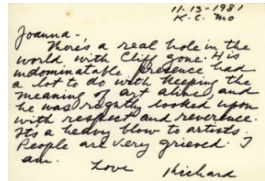 11-13-1981
K.C. Mo
Joanna -
There's a real hole in the
world, with Cliff gone. His
indominatable presence had
a lot to do with keeping the
meaning of art alive, and
he was rightly looked upon
with respect and reverence.
Its a heavy blow to artists.
People are very grieved. I
am.
Love
Richard